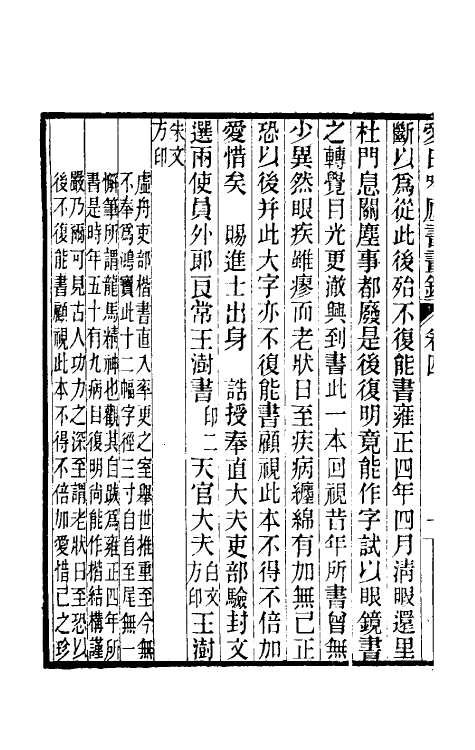 愛日吟廬書畫錄 卷四 一
斷以為從此後殆不復能書雍正四年四月清暇還里
杜門息關塵事都廢是後復明竟能作字試以眼鏡書
之轉覺目光更澈興到書此一本回視昔年所書曾無
少異然眼疾雖瘳而老狀日至疾病纏綿有加無已正
恐以後并此大字亦不復能書顧視此本不得不倍加
愛惜矣 賜進士出身 誥授奉直大夫吏部驗封文
選兩使員外郎良常王澍書 印二 天官大夫 白文方印 王澍
朱文方印
虛舟吏部楷書直入率更之室舉世推重至今無
不奉為鴻寶此十二幅字徑三寸自首至尾無一
懈筆所謂龍馬精神也觀其自跋為雍正四年所
書是時年五十有九病目復明尚能作楷結構謹
嚴乃爾可見古人功力之深至謂老狀日至恐以
後不復能書顧視此本不得不倍加愛惜己之珍